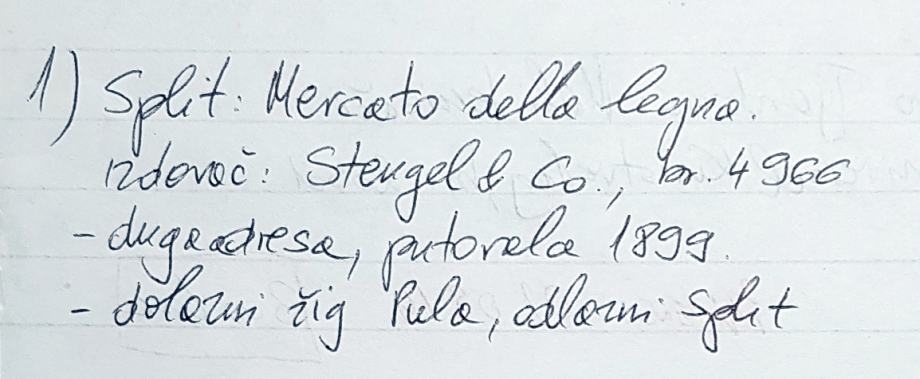 1) Split: Mercato della legna.
izdavač: Stengel & Co., br. 4966
- duga adresa, putovala 1899.
- dolazni žig Pula, odlazni Split